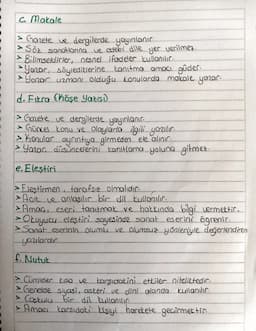 c. Makale
> Gazete ve dergilerde yayınlanır.
> Söz sanatlarına ve edebi dile yer verilmez.
> Bilimseldirler, nesnel ifadeler kullanılır.
> Yazar, söylediklerine tanıtma amacı güder.
> Yazar uzmanı olduğu konularda makale yazar.
d. Fıkra (Köşe Yazısı)
> Gazete ve dergilerde yayınlanır.
> Güncel konu ve olaylarla ilgili yazılır.
> Konular ayrıntıya girmeden ele alınır.
> Yazar düşüncelerini kanıtlama yoluna gitmez.
e. Eleştiri
> Eleştirmen, tarafsız olmalıdır.
> Açık ve anlaşılır bir dil kullanılır.
> Amacı, eseri tanıtmak ve hakkında bilgi vermektir.
> Okuyucu eleştiri sayesinde sanat eserini öğrenir.
> Sanat eserinin olumlu ve olumsuz yönleriyle değerlendiren
yazılardır.
f. Nutuk
> Cümleler kısa ve karşıdakini etkiler niteliktedir.
> Genelde siyasi, askeri ve dini alanda kullanılır.
> Coşkulu bir dil kullanılır.
> Amacı karşıdaki kişiyi harekete geçirmektir.